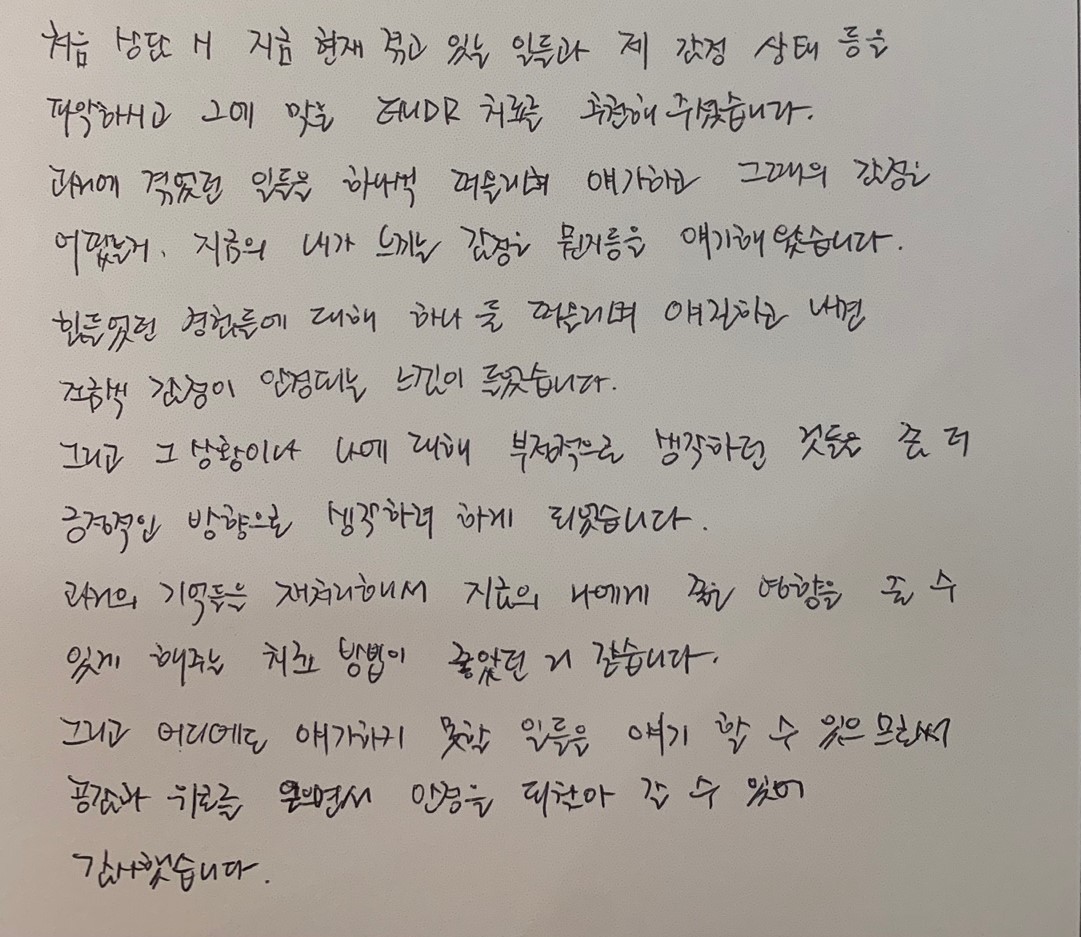 처음 상담 시 지금 현재 겪고 있는 일들과 제 감정 상태 등을
파악하시고 그에 맞는 EMDR 치료를 추천해 주셨습니다.
과거에 겪었던 일들을 하나씩 떠올리며 얘기하고 그때의 감정은
어땠는지, 지금의 내가 느끼는 감정은 뭔지등을 얘기해 왔습니다.
힘들었던 경험들에 대해 하나 둘 떠올리며 얘길하고 나면
조금씩 감정이 안정되는 느낌이 들었습니다.
그리고 그 상황이나 나에 대해 부정적으로 생각하던 것들은 좀 더
긍정적인 방향으로 생각하려 하게 되었습니다.
과거의 기억들을 재처리해서 지금의 나에게 좋은 영향을 줄 수
있게 해주는 치료 방법이 좋았던 거 같습니다.
그리고 어디에도 얘기하지 못할 일들을 얘기 할 수 있으므로써
공감과 위로를 얻으면서 안정을 되찾아 갈 수 있어
감사했습니다.